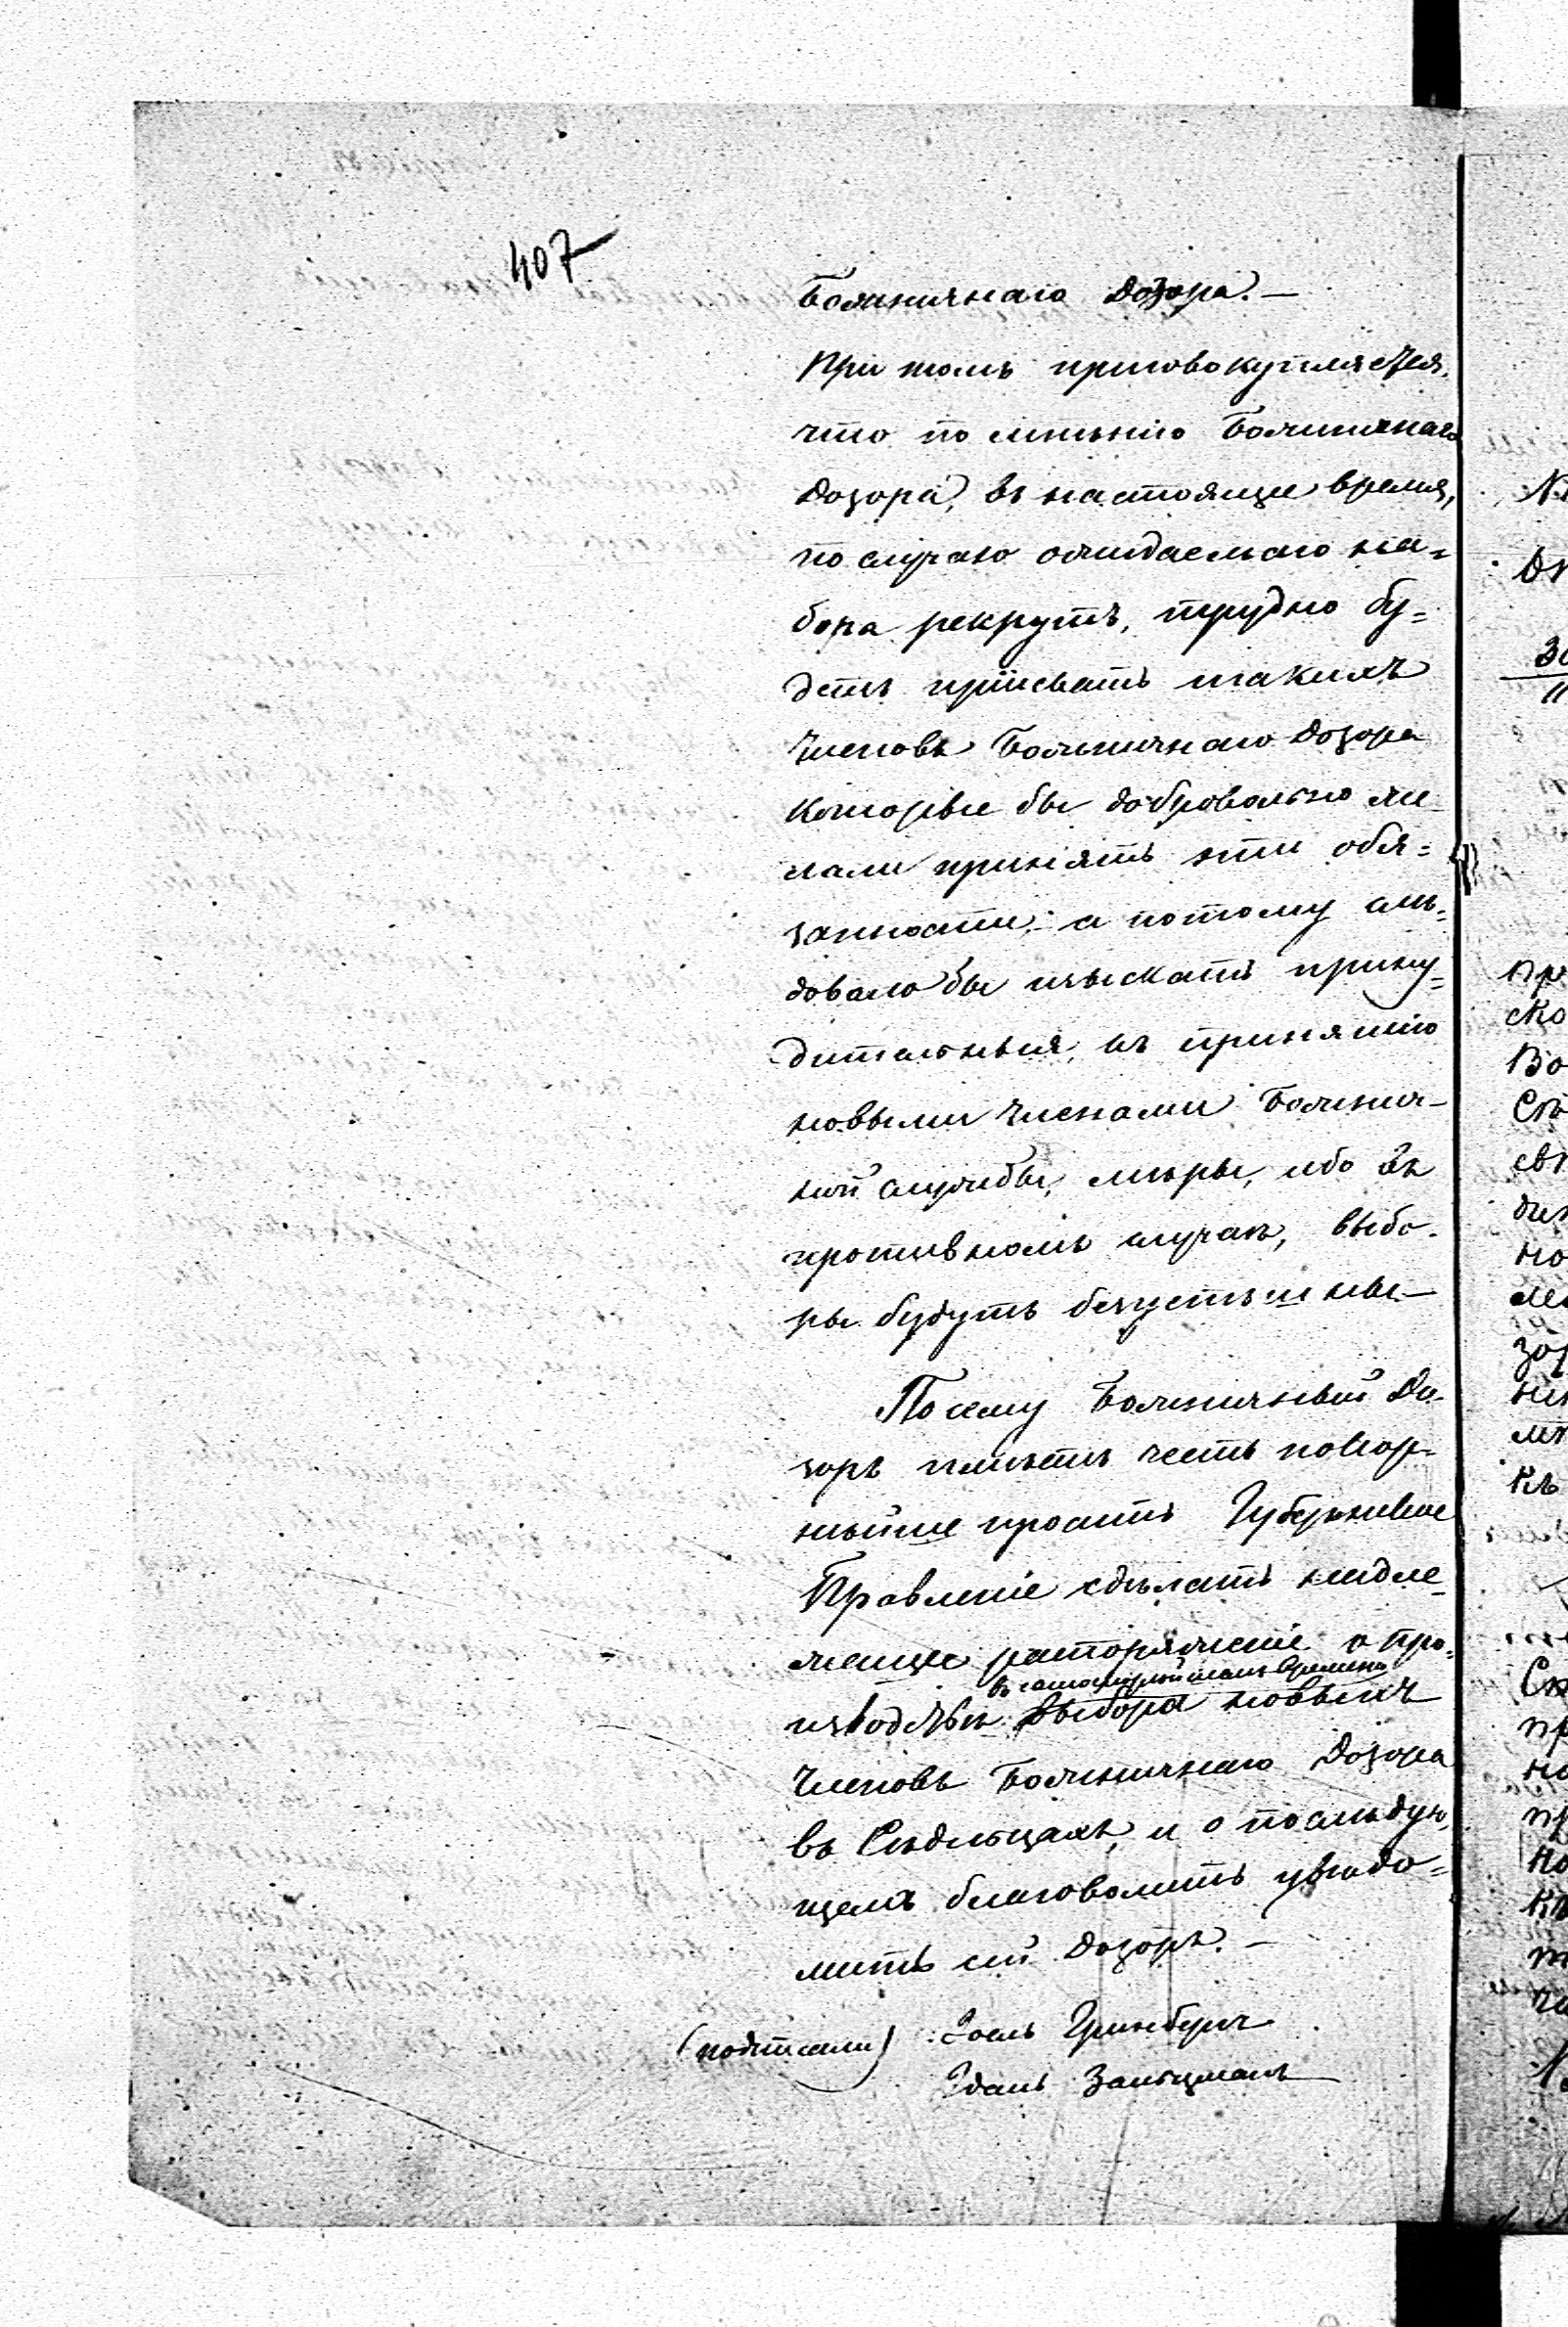 407
Божничнаго Дозора. —
При томъ присовокупляется,
что по мнѣнію Божничнаго
Дозора, въ настоящее время,
по случаю ожидаемаго на=
бора рекрутъ, трудно бу=
детъ пріискать такихъ
Членовъ Божничнаго Дозора
которые бы добровольно же
лали принять эти обя=
занности; а потому слѣ=
довало бы изыскать прину=
дительныя, къ принятію
новыми членами Божнич-
ной службы, мѣры, ибо въ
противномъ случаѣ, выбо-
ры будутъ безуспѣшны —
Посему Божничный До-
зоръ имѣетъ честь покор-
нѣйше просить Губернское
Правленіе сдѣлать надле=
жащее распоряженіе о про=
въ самоскорѣйшемъ времени
изводствѣ выбора новыхъ
Членовъ Божничнаго Дозора
въ Сѣдльцахъ, и о послѣдую
щемъ благоволить увѣдо=
мить сей Дозоръ. —
(подписали) Іоель Гринбергъ
Зальцманъ